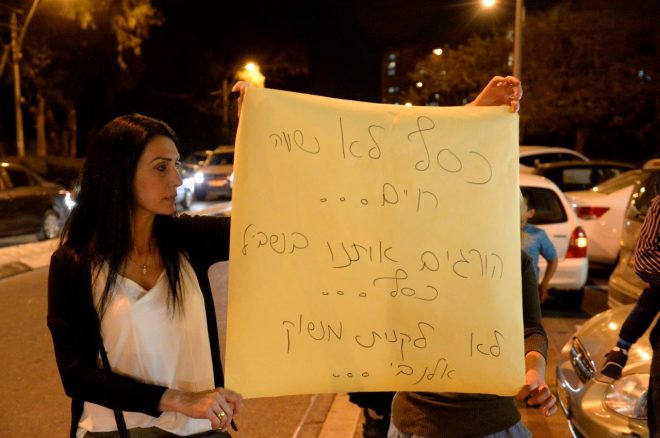 כסף לא נשווה
חיים...
הורגים אותנו בנשביל
כסף...
לא לקנית משוק
אלנבי...